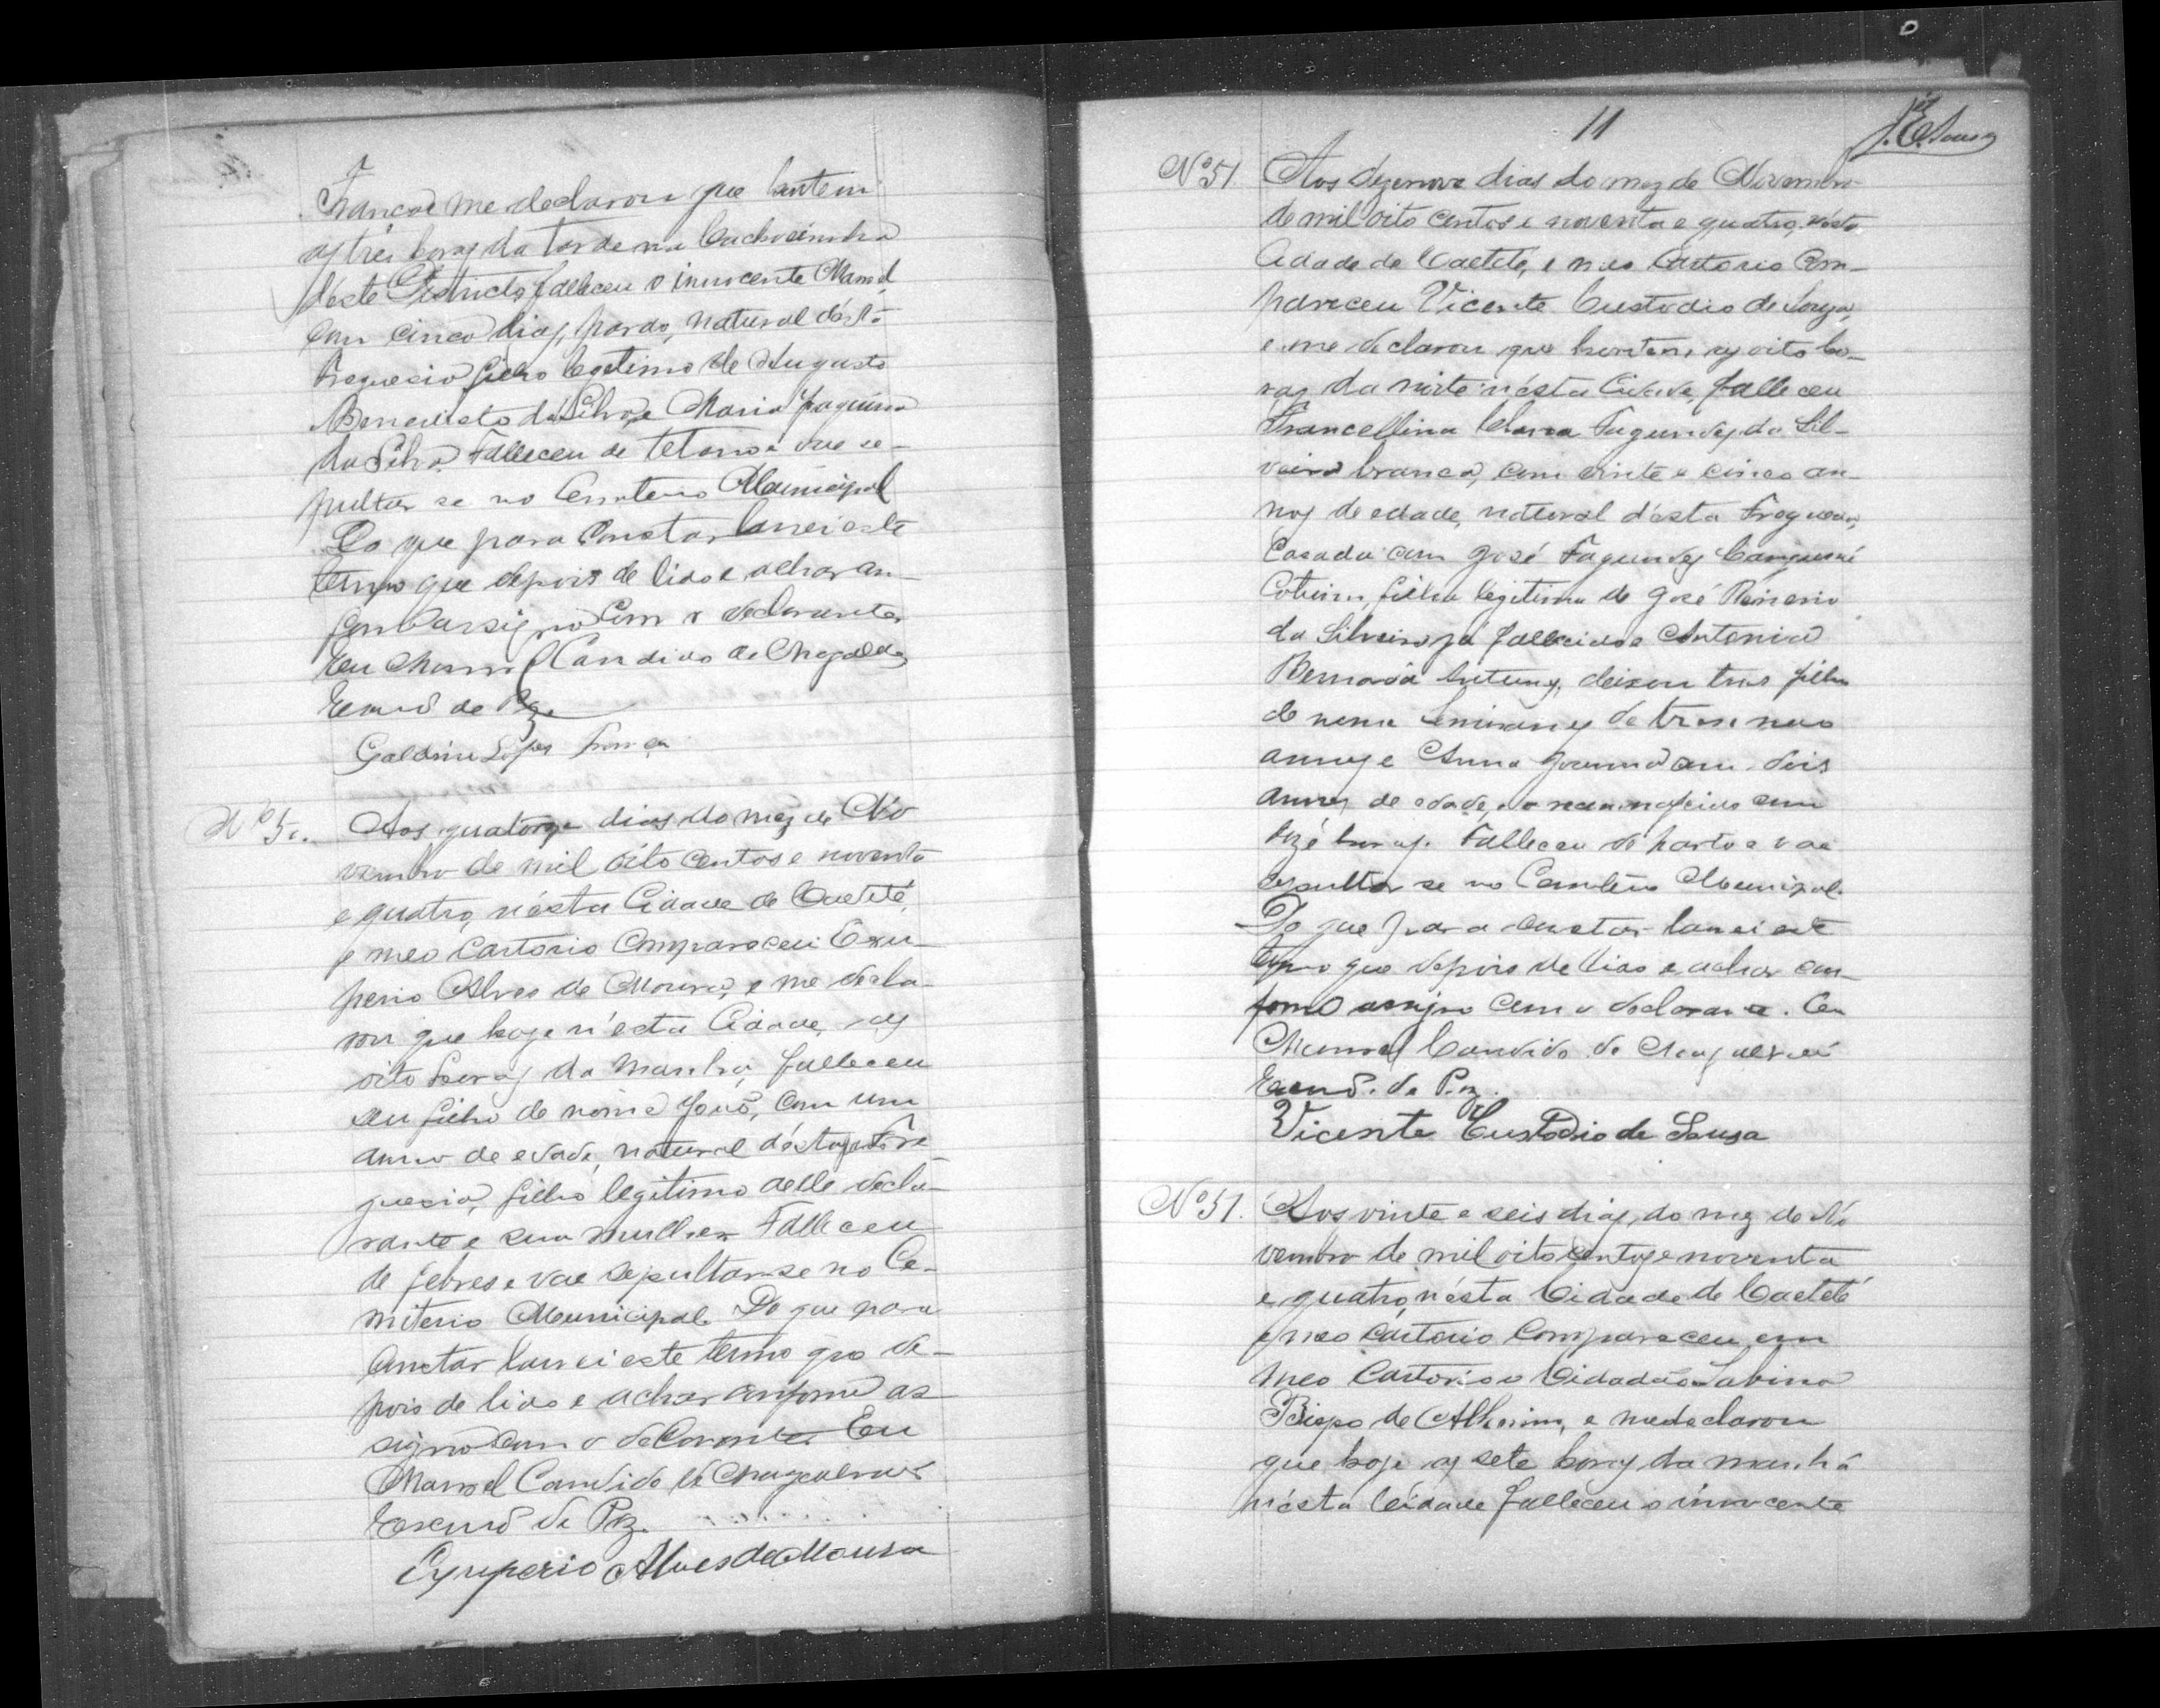 França e me declarou que hontem
as tres horas da tarde na Cachoeirinha
déste Districto falleceu o innocente Manoel
com cinco dias, pardo, natural désta
Freguesia filho legitimo de Augusto
Benedicto da Silva, e Maria Joaquina
da Silva. Falleceu de tetano e vae se-
pultar se no Cemiterio Municipal
Do que para constar lancei este
termo que depois de lido e achar con-
forme assigno com o declarante
Eu Manoel Candido de Magalhães
Escrivão de Paz.
Galdino Lopes França
Nº 50. Aos quatorze dias do mez de No
vembro de mil oito centos e noventa
e quatro, nésta Cidade de Caeteté,
e meo Cartorio Compareceu Exu-
perio Alves de Moura, e me decla-
rou que hoje n'esta Cidade, as
oito horas da manhã, falleceu
seu filho de nome João, com um
anno de edade, natural désta Fre-
guesia, filho legitimo delle decla-
rante e sua mulher Falleceu
de febres e vae sepultar-se no Ce-
miterio Municipal. Do que para
Constar lancei este termo que de-
pois de lido e achar conforme as
signo com o declarante. Eu
Manoel Candido de Magalhães
Escrivão de Paz.
Exuperio Alves de Moura
11
J. E. Sousa
Nº 51. Aos dezenove dias do mez de Novembro
de mil oito centos e noventa e quatro, nésta
Cidade de Caeteté, e meo Cartorio Com-
pareceu Vicente Custodio de Souza,
e me declarou que hontem as oito ho-
ras da noite nésta Cidade, falleceu
Francellina Clara Fagundes da Sil-
veira branca, com vinte e cinco an-
nos de edade, natural désta Freguesia,
Casada com José Fagundes
Cotrim, filha legitima de José
da Silveira já fallecido e Antonia
Bernarda Antunes, deixou tres filhos
de nome de tres
annos e Anna Joanna com dois
annos de edade, e o recem nascido com
horas. Falleceu de parto e vae
sepultar se no Cemiterio Municipal.
Do que para constar lancei este
termo que depois de lido e achar con-
forme assigno com o declarante. Eu
Manoel Candido de Magalhães
Escrivão de Paz.
Vicente Custodio de Sousa
Nº 51. Aos vinte e seis dias, do mez de No
vembro de mil oito centos e noventa
e quatro, nésta Cidade de Caeteté
e meo Cartorio Compareceu em
meo Cartorio o Cidadão Sabino
Bispo de e me declarou
que hoje as sete horas da manhã
nésta Cidade falleceu o innocente